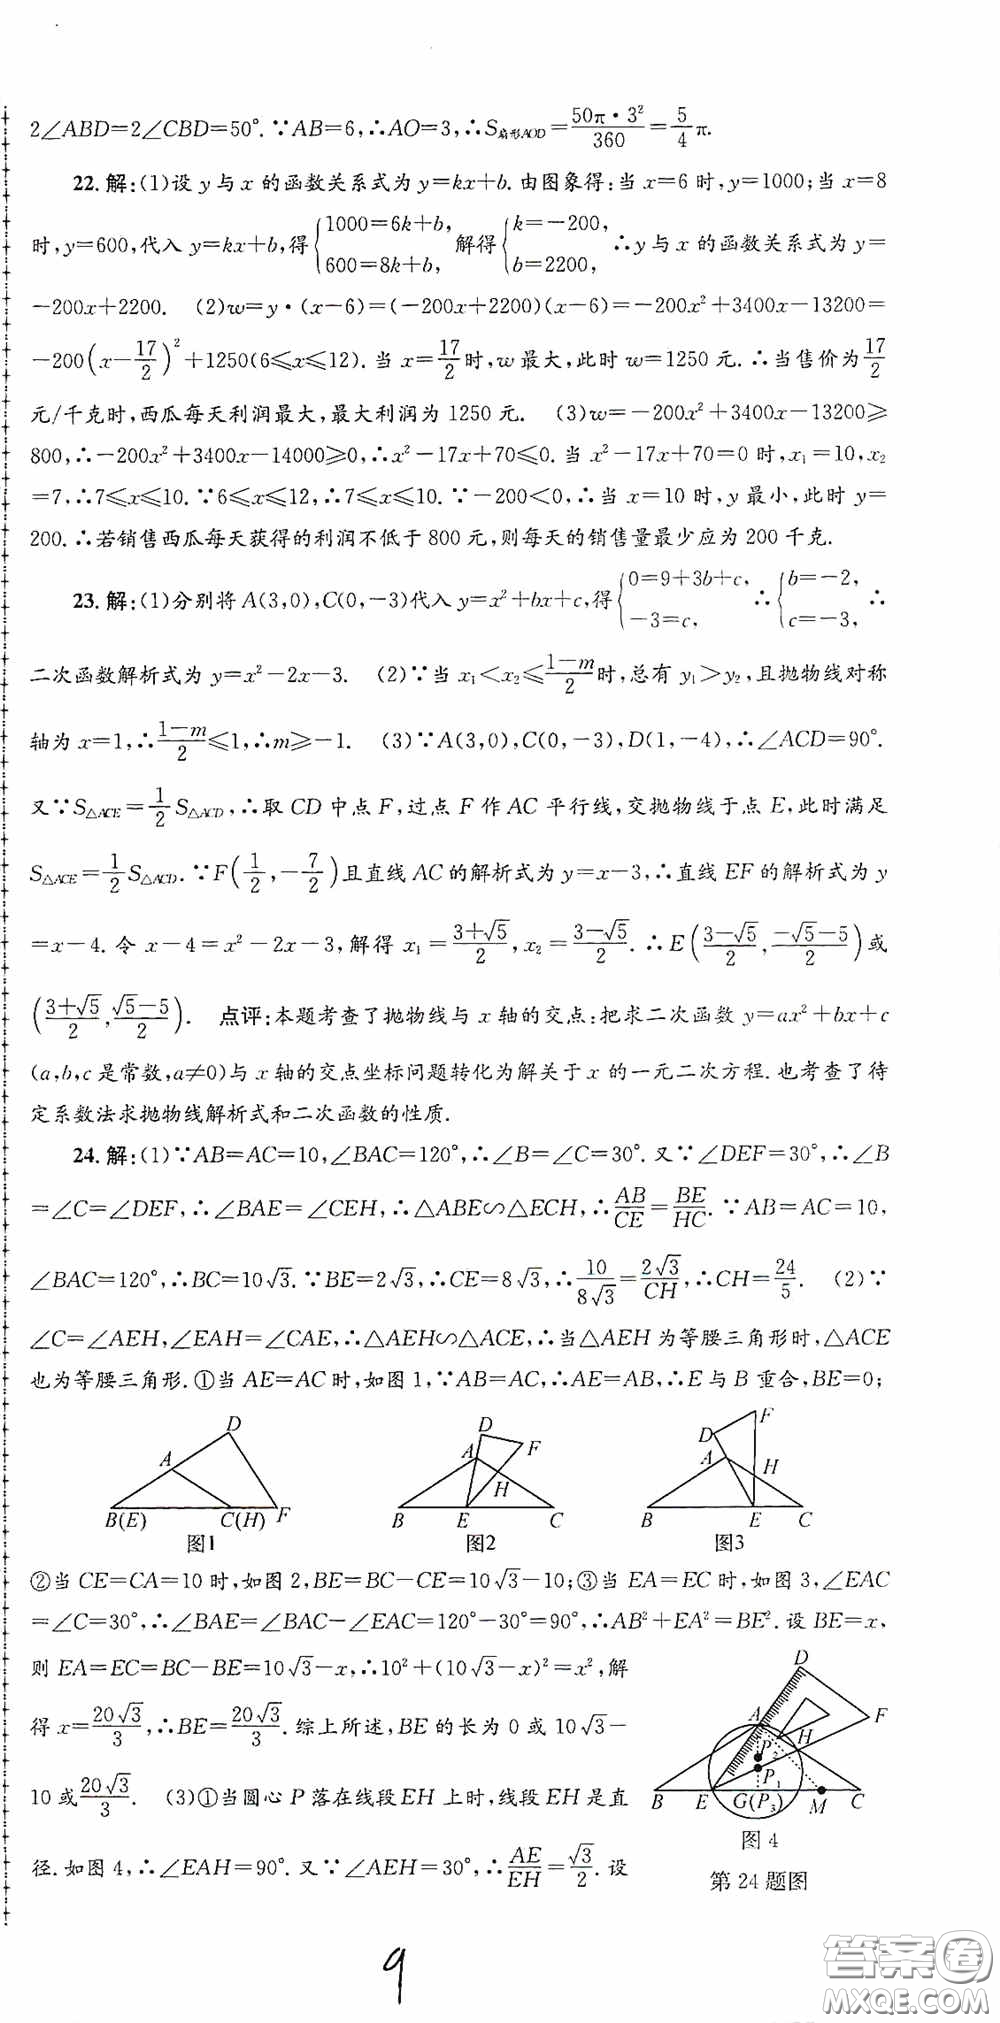 2∠ABD=2∠CBD=50°.∵AB=6,∴AO=3,∴S扇形AOD=50π·3²/360=5/4π.
22.解:(1)设 y 与 x 的函数关系式为 y=kx+b.由图象得:当 x=6 时,y=1000;当 x=8
时,y=600,代入 y=kx+b,得{1000=6k+b, 600=8k+b, 解得{k=-200, b=2200, ∴y 与 x 的函数关系式为 y=
-200x+2200. (2)w=y·(x-6)=(-200x+2200)(x-6)=-200x²+3400x-13200=
-200(x-17/2)²+1250(6≤x≤12).当 x=17/2时,w 最大,此时 w=1250 元.∴当售价为17/2
元/千克时,西瓜每天利润最大,最大利润为 1250 元. (3)w=-200x²+3400x-13200≥
800,∴-200x²+3400x-14000≥0,∴x²-17x+70≤0.当 x²-17x+70=0 时,x₁=10,x₂
=7,∴7≤x≤10.∵6≤x≤12,∴7≤x≤10.∵-200<0,∴当 x=10 时,y 最小,此时 y=
200.∴若销售西瓜每天获得的利润不低于 800 元,则每天的销售量最少应为 200 千克.
23.解:(1)分别将 A(3,0),C(0,-3)代入 y=x²+bx+c,得{0=9+3b+c, -3=c, ∴{b=-2, c=-3, ∴
二次函数解析式为 y=x²-2x-3. (2)∵当 x₁<x₂≤(1-m)/2时,总有 y₁>y₂,且抛物线对称
轴为 x=1,∴(1-m)/2≤1,∴m≥-1. (3)∵A(3,0),C(0,-3),D(1,-4),∴∠ACD=90°.
又∵S△ACE=1/2 S△ACD,∴取 CD 中点 F,过点 F 作 AC 平行线,交抛物线于点 E,此时满足
S△ACE=1/2 S△ACD.∵F(1/2,-7/2)且直线 AC 的解析式为 y=x-3,∴直线 EF 的解析式为 y
=x-4.令 x-4=x²-2x-3,解得 x₁=(3+√5)/2,x₂=(3-√5)/2.∴E((3-√5)/2,(-√5-5)/2)或
((3+√5)/2,(√5-5)/2). 点评:本题考查了抛物线与 x 轴的交点:把求二次函数 y=ax²+bx+c
(a,b,c 是常数,a≠0)与 x 轴的交点坐标问题转化为解关于 x 的一元二次方程.也考查了待
定系数法求抛物线解析式和二次函数的性质.
24.解:(1)∵AB=AC=10,∠BAC=120°,∴∠B=∠C=30°.又∵∠DEF=30°,∴∠B
=∠C=∠DEF,∴∠BAE=∠CEH,∴△ABE∽△ECH,∴AB/CE=BE/HC.∵AB=AC=10,
∠BAC=120°,∴BC=10√3.∵BE=2√3,∴CE=8√3,∴10/8√3=2√3/CH,∴CH=24/5. (2)∵
∠C=∠AEH,∠EAH=∠CAE,∴△AEH∽△ACE,∴当△AEH 为等腰三角形时,△ACE
也为等腰三角形.①当 AE=AC 时,如图 1,∵AB=AC,∴AE=AB,∴E 与 B 重合,BE=0;
D A B(E) C(H) F
图1
D F A H B E C
图2
F D A H B E C
图3
②当 CE=CA=10 时,如图 2,BE=BC-CE=10√3-10;③当 EA=EC 时,如图 3,∠EAC
=∠C=30°,∴∠BAE=∠BAC-∠EAC=120°-30°=90°,∴AB²+EA²=BE².设 BE=x,
则 EA=EC=BC-BE=10√3-x,∴10²+(10√3-x)²=x²,解
得 x=20√3/3,∴BE=20√3/3.综上所述,BE 的长为 0 或 10√3-
10 或20√3/3. (3)①当圆心 P 落在线段 EH 上时,线段 EH 是直
径.如图 4,∴∠EAH=90°.又∵∠AEH=30°,∴AE/EH=√3/2.设
D A F H P₂ P₁ B E G(P₃) M C
图 4
第 24 题图
9
答案圈
MXQE.COM